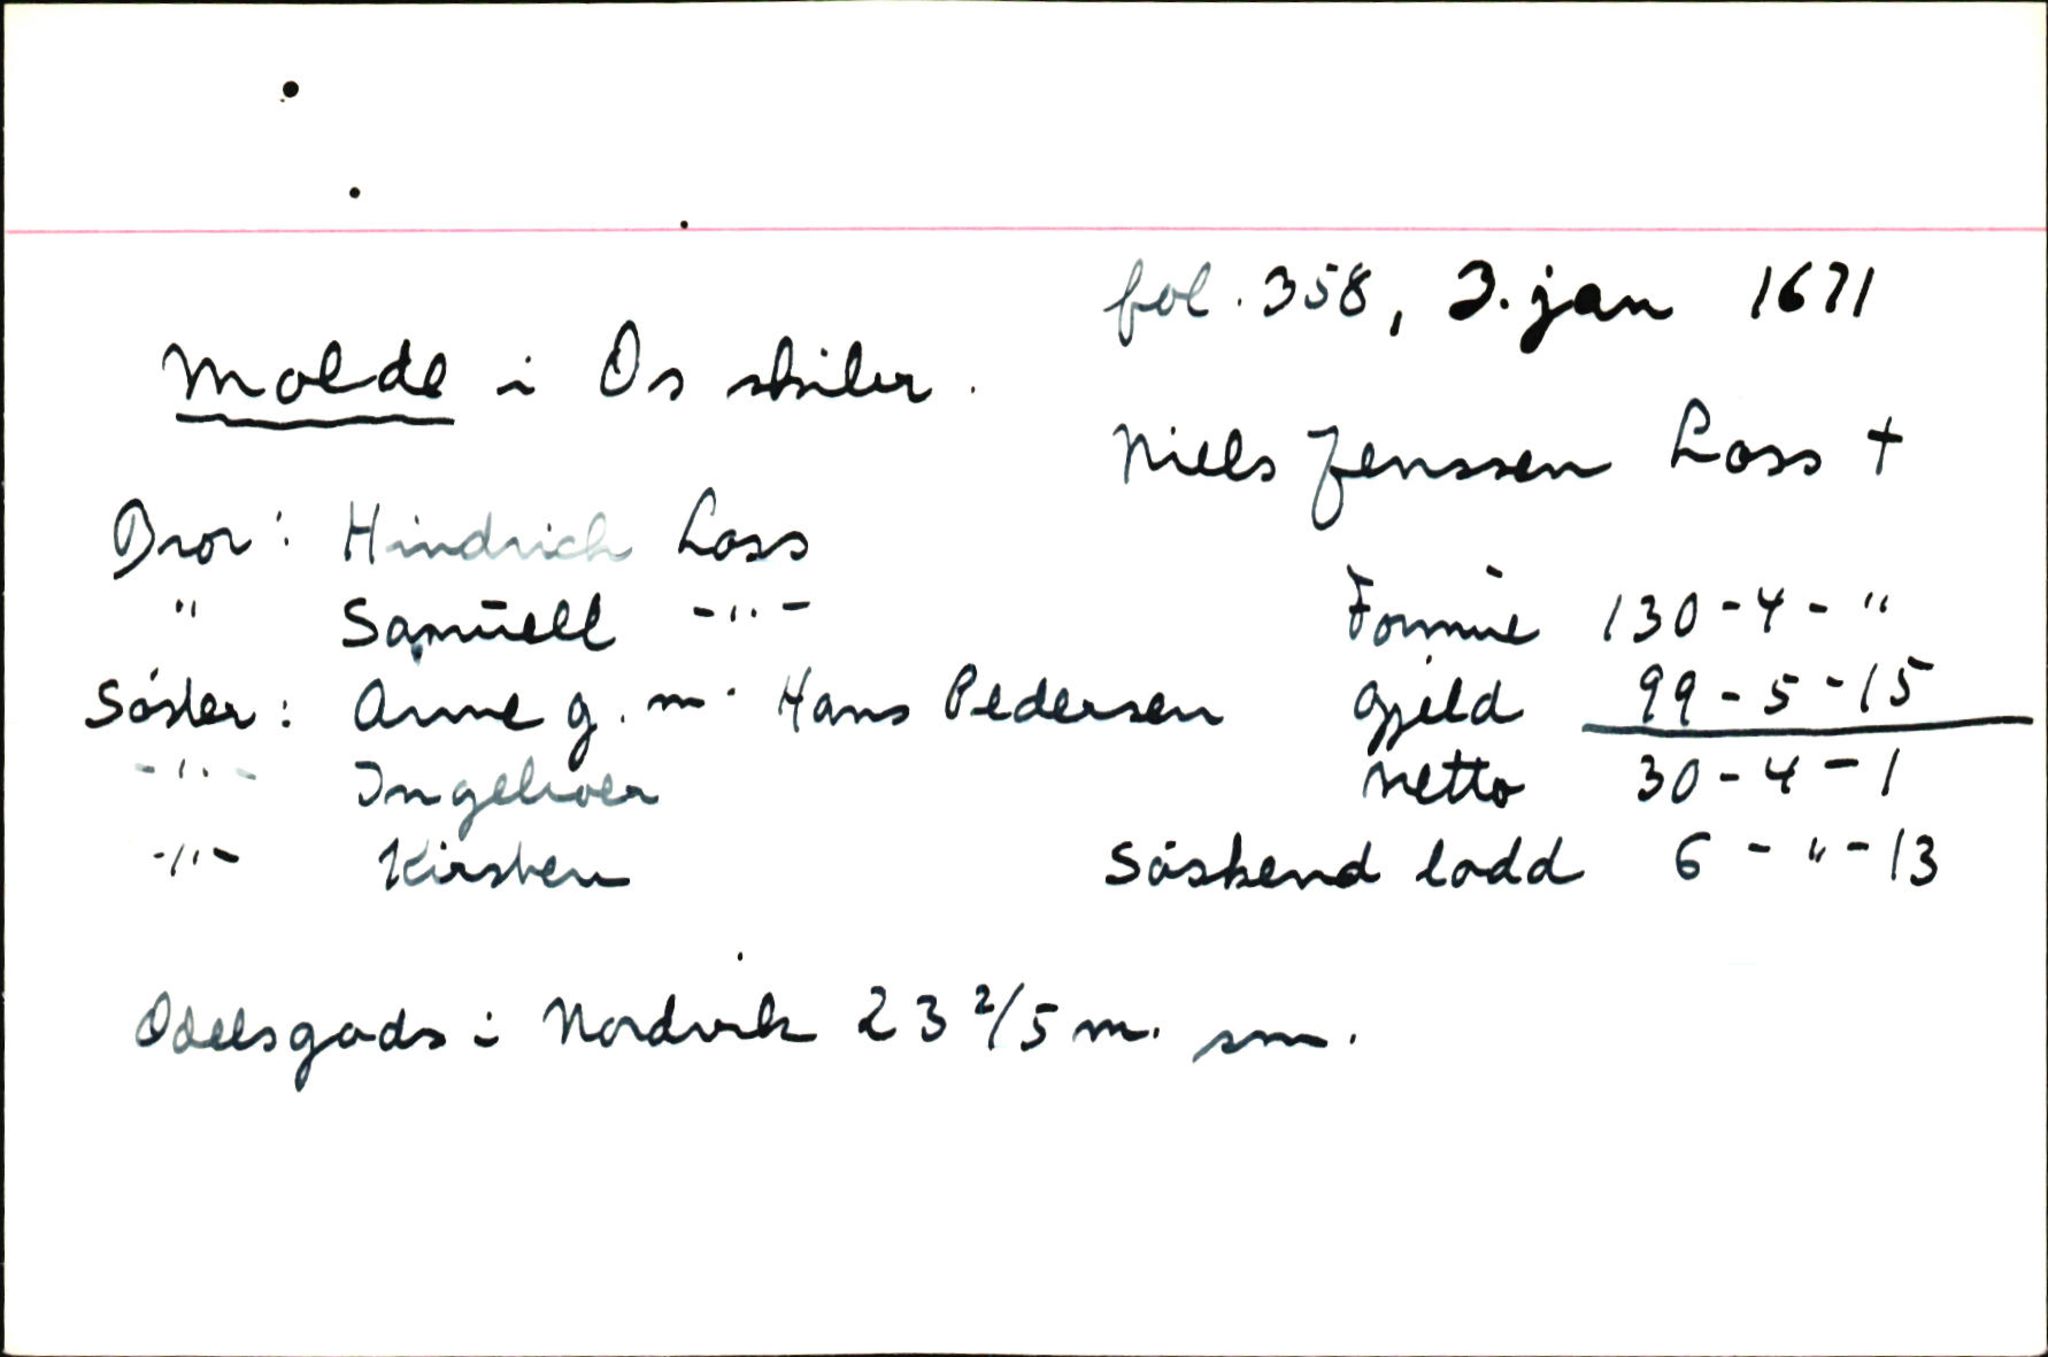 fol. 358, 3. jan 1671
Molde i Os skiler.
Niels Jenssen Lass +
Bror: Hindrich Lass
" Samŭell -"-
Formue 130-4-"
Søster: Anne g. m. Hans Pedersen
Gjeld 99-5-15
-"- Ingeborg
Netto 30-4-1
-"- Kirsten
Søskend lodd 6-"-13
Odelsgods i Nordvik 23 2/5 m. sm.